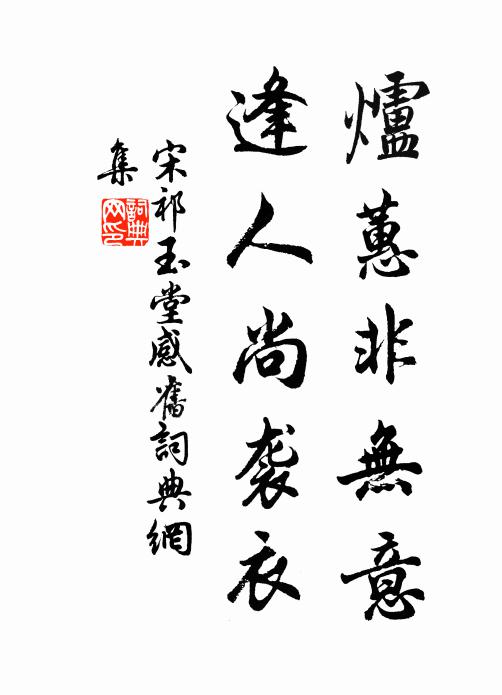 爐蕙非無意
逢人尚袭衣
宋祁玉堂感舊詞典網
集
詞典
网印